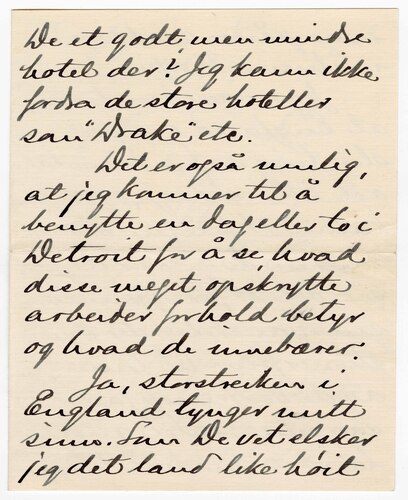 De et godt, men mindre
hotel der? Jeg kann ikke
fordra de store hoteller
som "Drake" etc.
Det er også mulig,
at jeg kommer til å
benytte en dag eller to i
Detroit for å se, hvad
disse meget opskrytte
arbeider forhold betyr
og hvad de innebærer.
Ja, storstreiken i
England tynger mitt
sinn. Som De vet elsker
jeg det land like høit